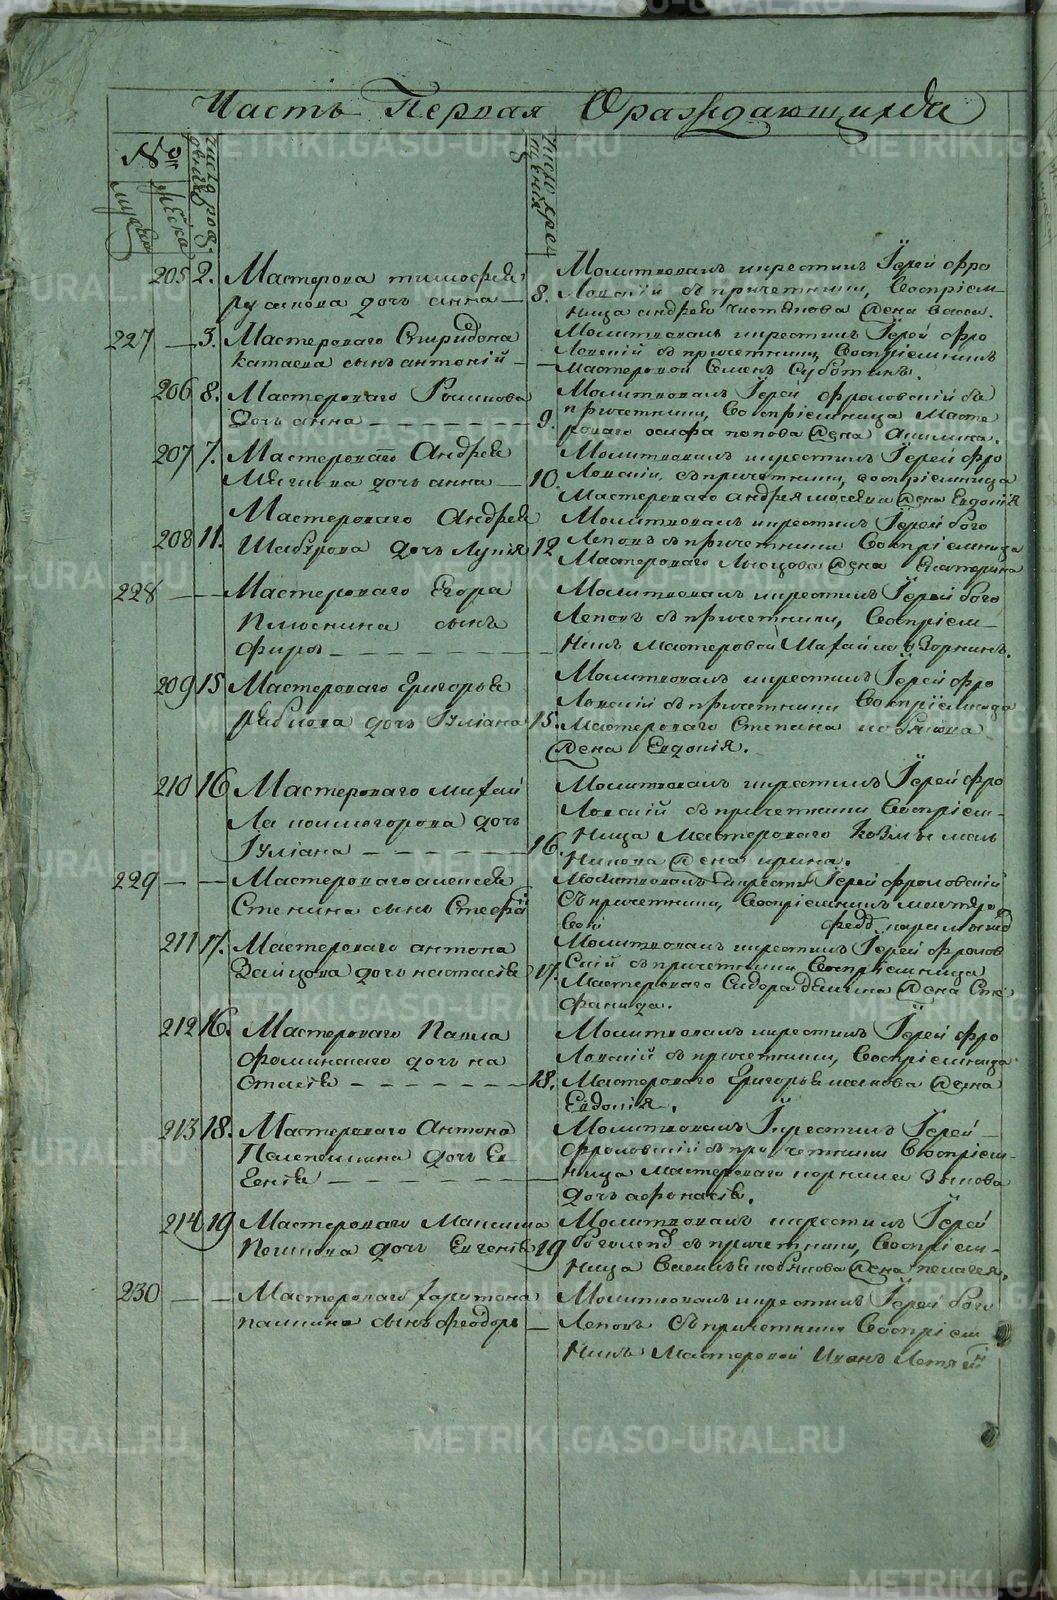 Часть Первая Ораждающихся
№
мужска
женска
число рожд.
число крещения
205 2. Мастерова тимофея
Русакова дочь анна — 8.
Молитвовалъ икрестилъ Їерей фро
ловскій съ причетники, Воспріем-
ница андрея чистякова жена васса.
227 — 3. Мастероваго Спиридона
катаева сынъ антоній —
Молитвовалъ икрестилъ Їерей фро
ловскій съ причетники, Воспріемникъ
Мастеровой Семенъ Суботинъ.
206 8. Мастероваго
дочь анна — 9.
Молитвовалъ Їерей фроловскій съ
причетники, Воспріемница Масте
роваго осифа попова жена Акилина.
207 7. Мастероваго Андрея
дочь анна — 10.
Молитвовалъ икрестилъ Їерей фро
ловскій, съ причетники, воспріемница
Мастероваго андрея жена Евдокія
208 11. Мастероваго Андрея
Шабурова дочь Лукія 12
Молитвовалъ икрестилъ Їерей бого
леповъ съ причетники Воспріемница
Мастероваго жена Екатерина
228 — — Мастероваго Егора
Плюснина сынъ
фирсъ —
Молитвовалъ икрестилъ Їерей бого
леповъ съ причетники, Воспріем-
никъ Мастеровой Михайло Зоркинъ.
209 15 Мастероваго Григорья
Рябкова дочь Іуліана 15.
Молитвовалъ икрестилъ Їерей фро
ловскій съ причетники Воспріемница
Мастероваго Степана кобякова
жена Евдокія.
210 16 Мастероваго михай
ла колмогорова дочь
Іуліана — 16.
Молитвовалъ икрестилъ Їерей фро
ловскій съ причетники Воспріем-
ница Мастероваго Козмы маль
никова жена ирина.
229 — — Мастероваго алексея
Стенина сынъ Стефанъ
Молитвовалъ икрестилъ Їерей фроловскій
Съ причетники, Воспріемникъ мастеро
вой
211 17. Мастероваго антона
Зайцова дочь настасія 17.
Молитвовалъ икрестилъ Їерей фролов
скій съ причетники Воспріемница
Мастероваго Сидора жена Сте
фанида.
212 16. Мастероваго Павла
фоминскаго дочь на
стасія — 18.
Молитвовалъ икрестилъ Їерей фро
ловскій съ причетники, Воспріемница
Мастероваго Григорья жена
Евдокія.
213 18. Мастероваго Антона
дочь Ев
генія —
Молитвовалъ Їкрестилъ Їерей
фроловскій съ причетники Воспріем-
ница мастероваго корнила Зыкова
дочь афонасія.
214 19 Мастероваго Максима
дочь Евгенія 19
Молитвовалъ икрестилъ Їерей
боголепъ съ причетники, Воспріем-
ница Василья кобякова жена пелагея.
230 — — Мастероваго харитона
сынъ феодоръ —
Молитвовалъ икрестилъ Їерей бого
леповъ Съ причетники Воспріем
никъ Мастеровой Иванъ Летягин
METRIKI.GASO-URAL.RU